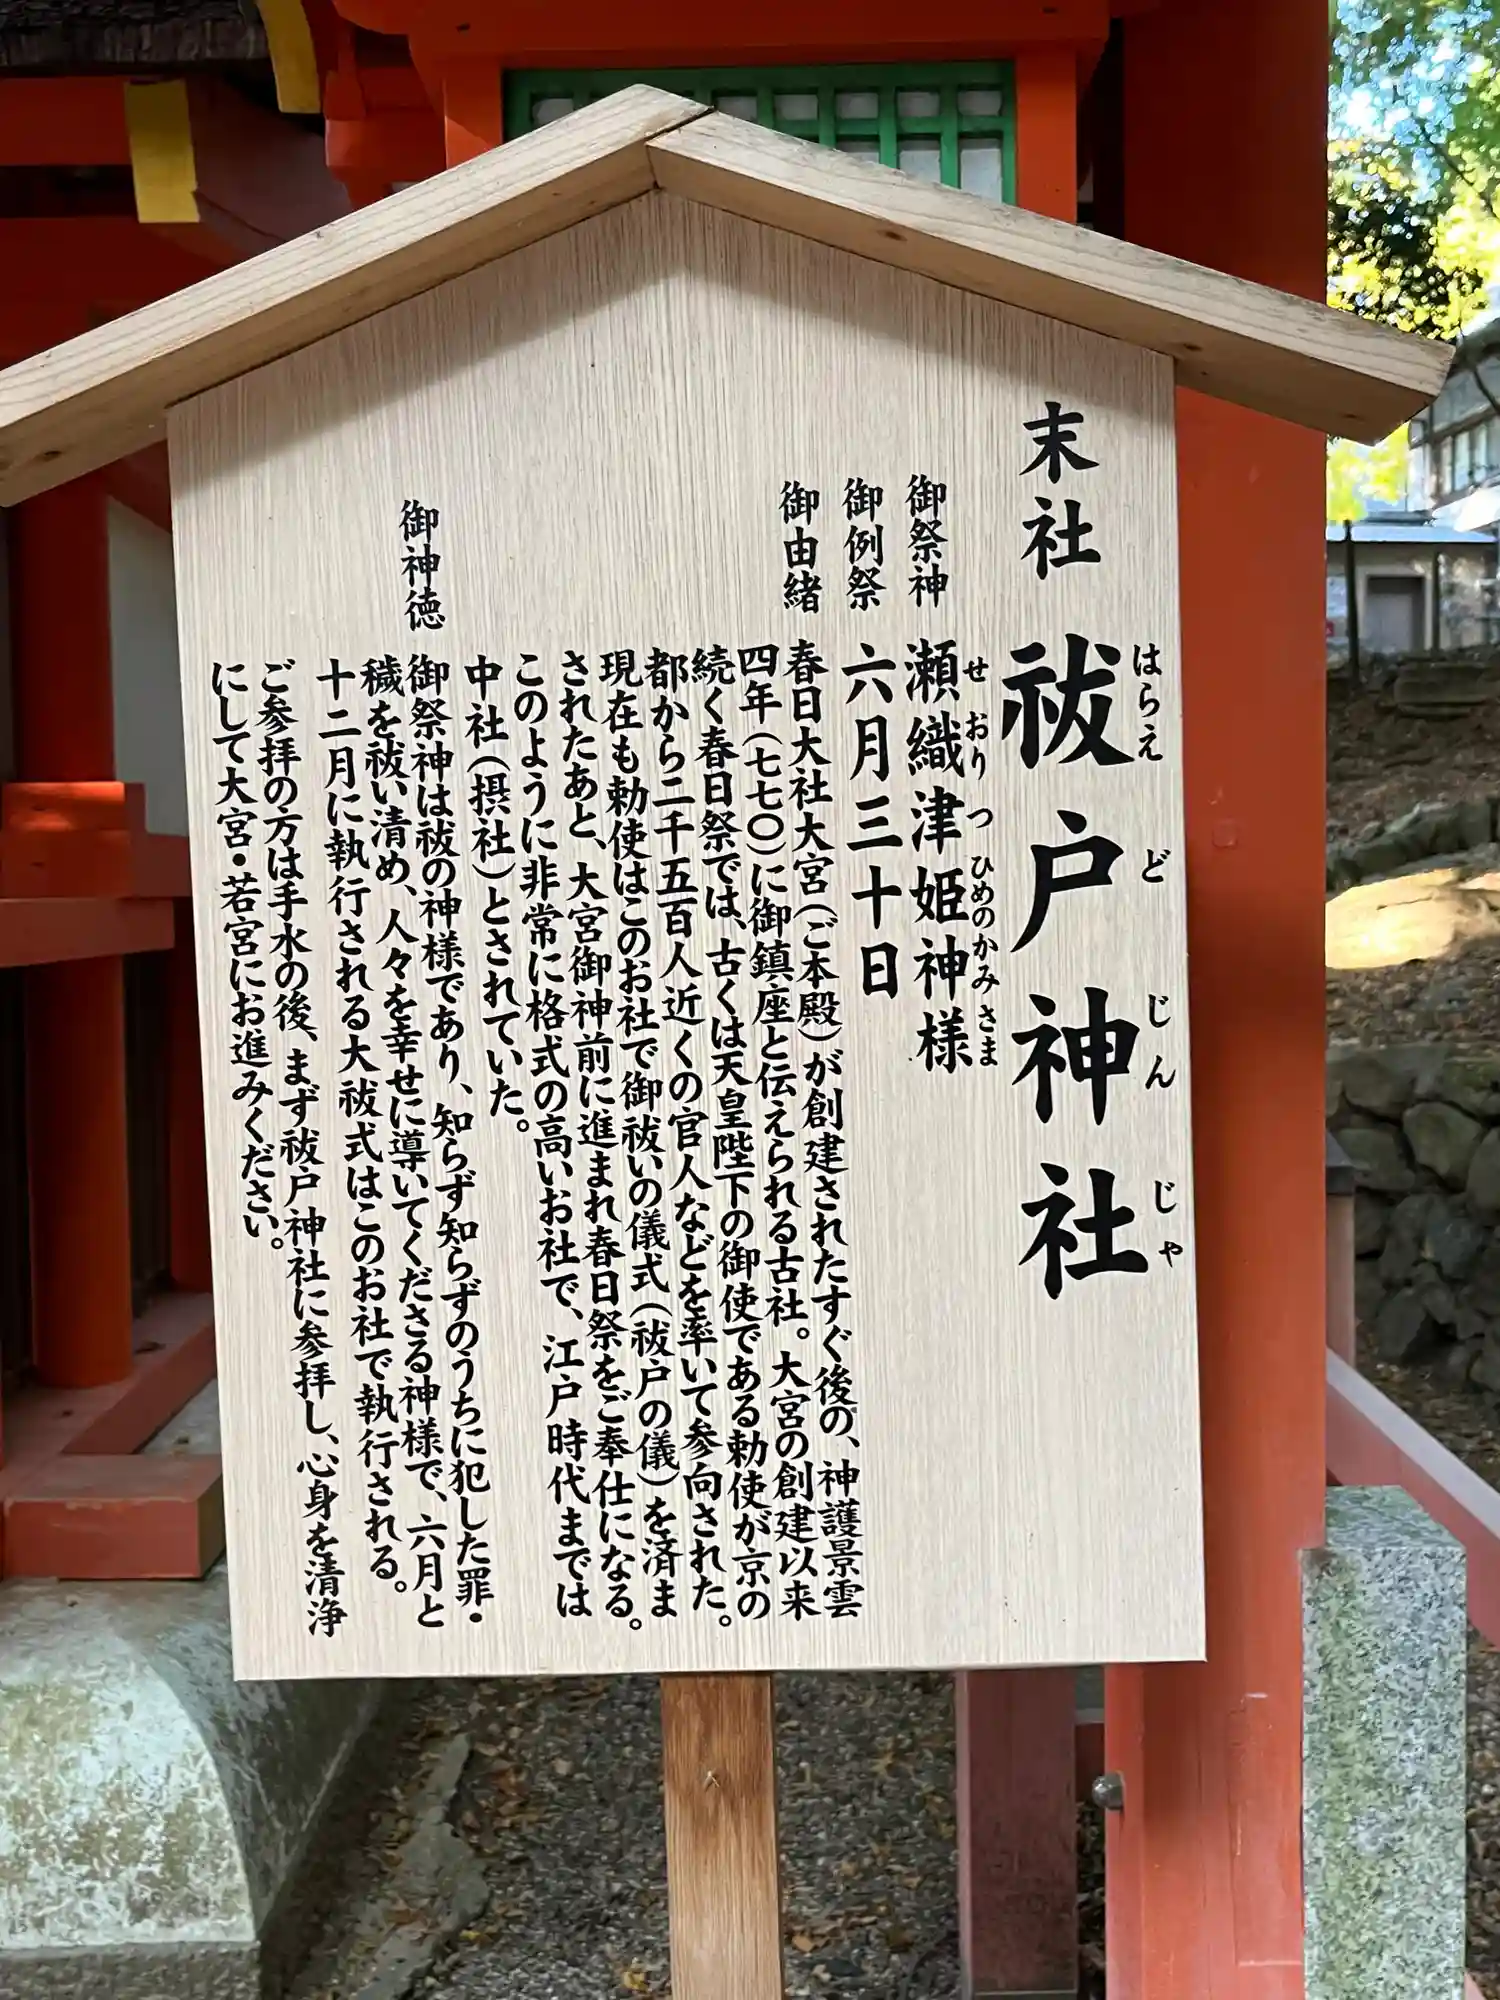 末社 祓戸神社
はらえ ど じん じゃ
御祭神 瀬織津姫神様
せ おり つ ひめのかみさま
御例祭 六月三十日
御由緒 春日大社大宮(ご本殿)が創建されたすぐ後の、神護景雲
四年(七七〇)に御鎮座と伝えられる古社。大宮の創建以来
続く春日祭では、古くは天皇陛下の御使である勅使が京の
都から二千五百人近くの官人などを率いて参向された。
現在も勅使はこのお社で御祓いの儀式(祓戸の儀)を済ま
されたあと、大宮御神前に進まれ春日祭をご奉仕になる。
このように非常に格式の高いお社で、江戸時代までは
中社(摂社)とされていた。
御神徳 御祭神は祓の神様であり、知らず知らずのうちに犯した罪・
穢を祓い清め、人々を幸せに導いてくださる神様で、六月と
十二月に執行される大祓式はこのお社で執行される。
ご参拝の方は手水の後、まず祓戸神社に参拝し、心身を清浄
にして大宮・若宮にお進みください。